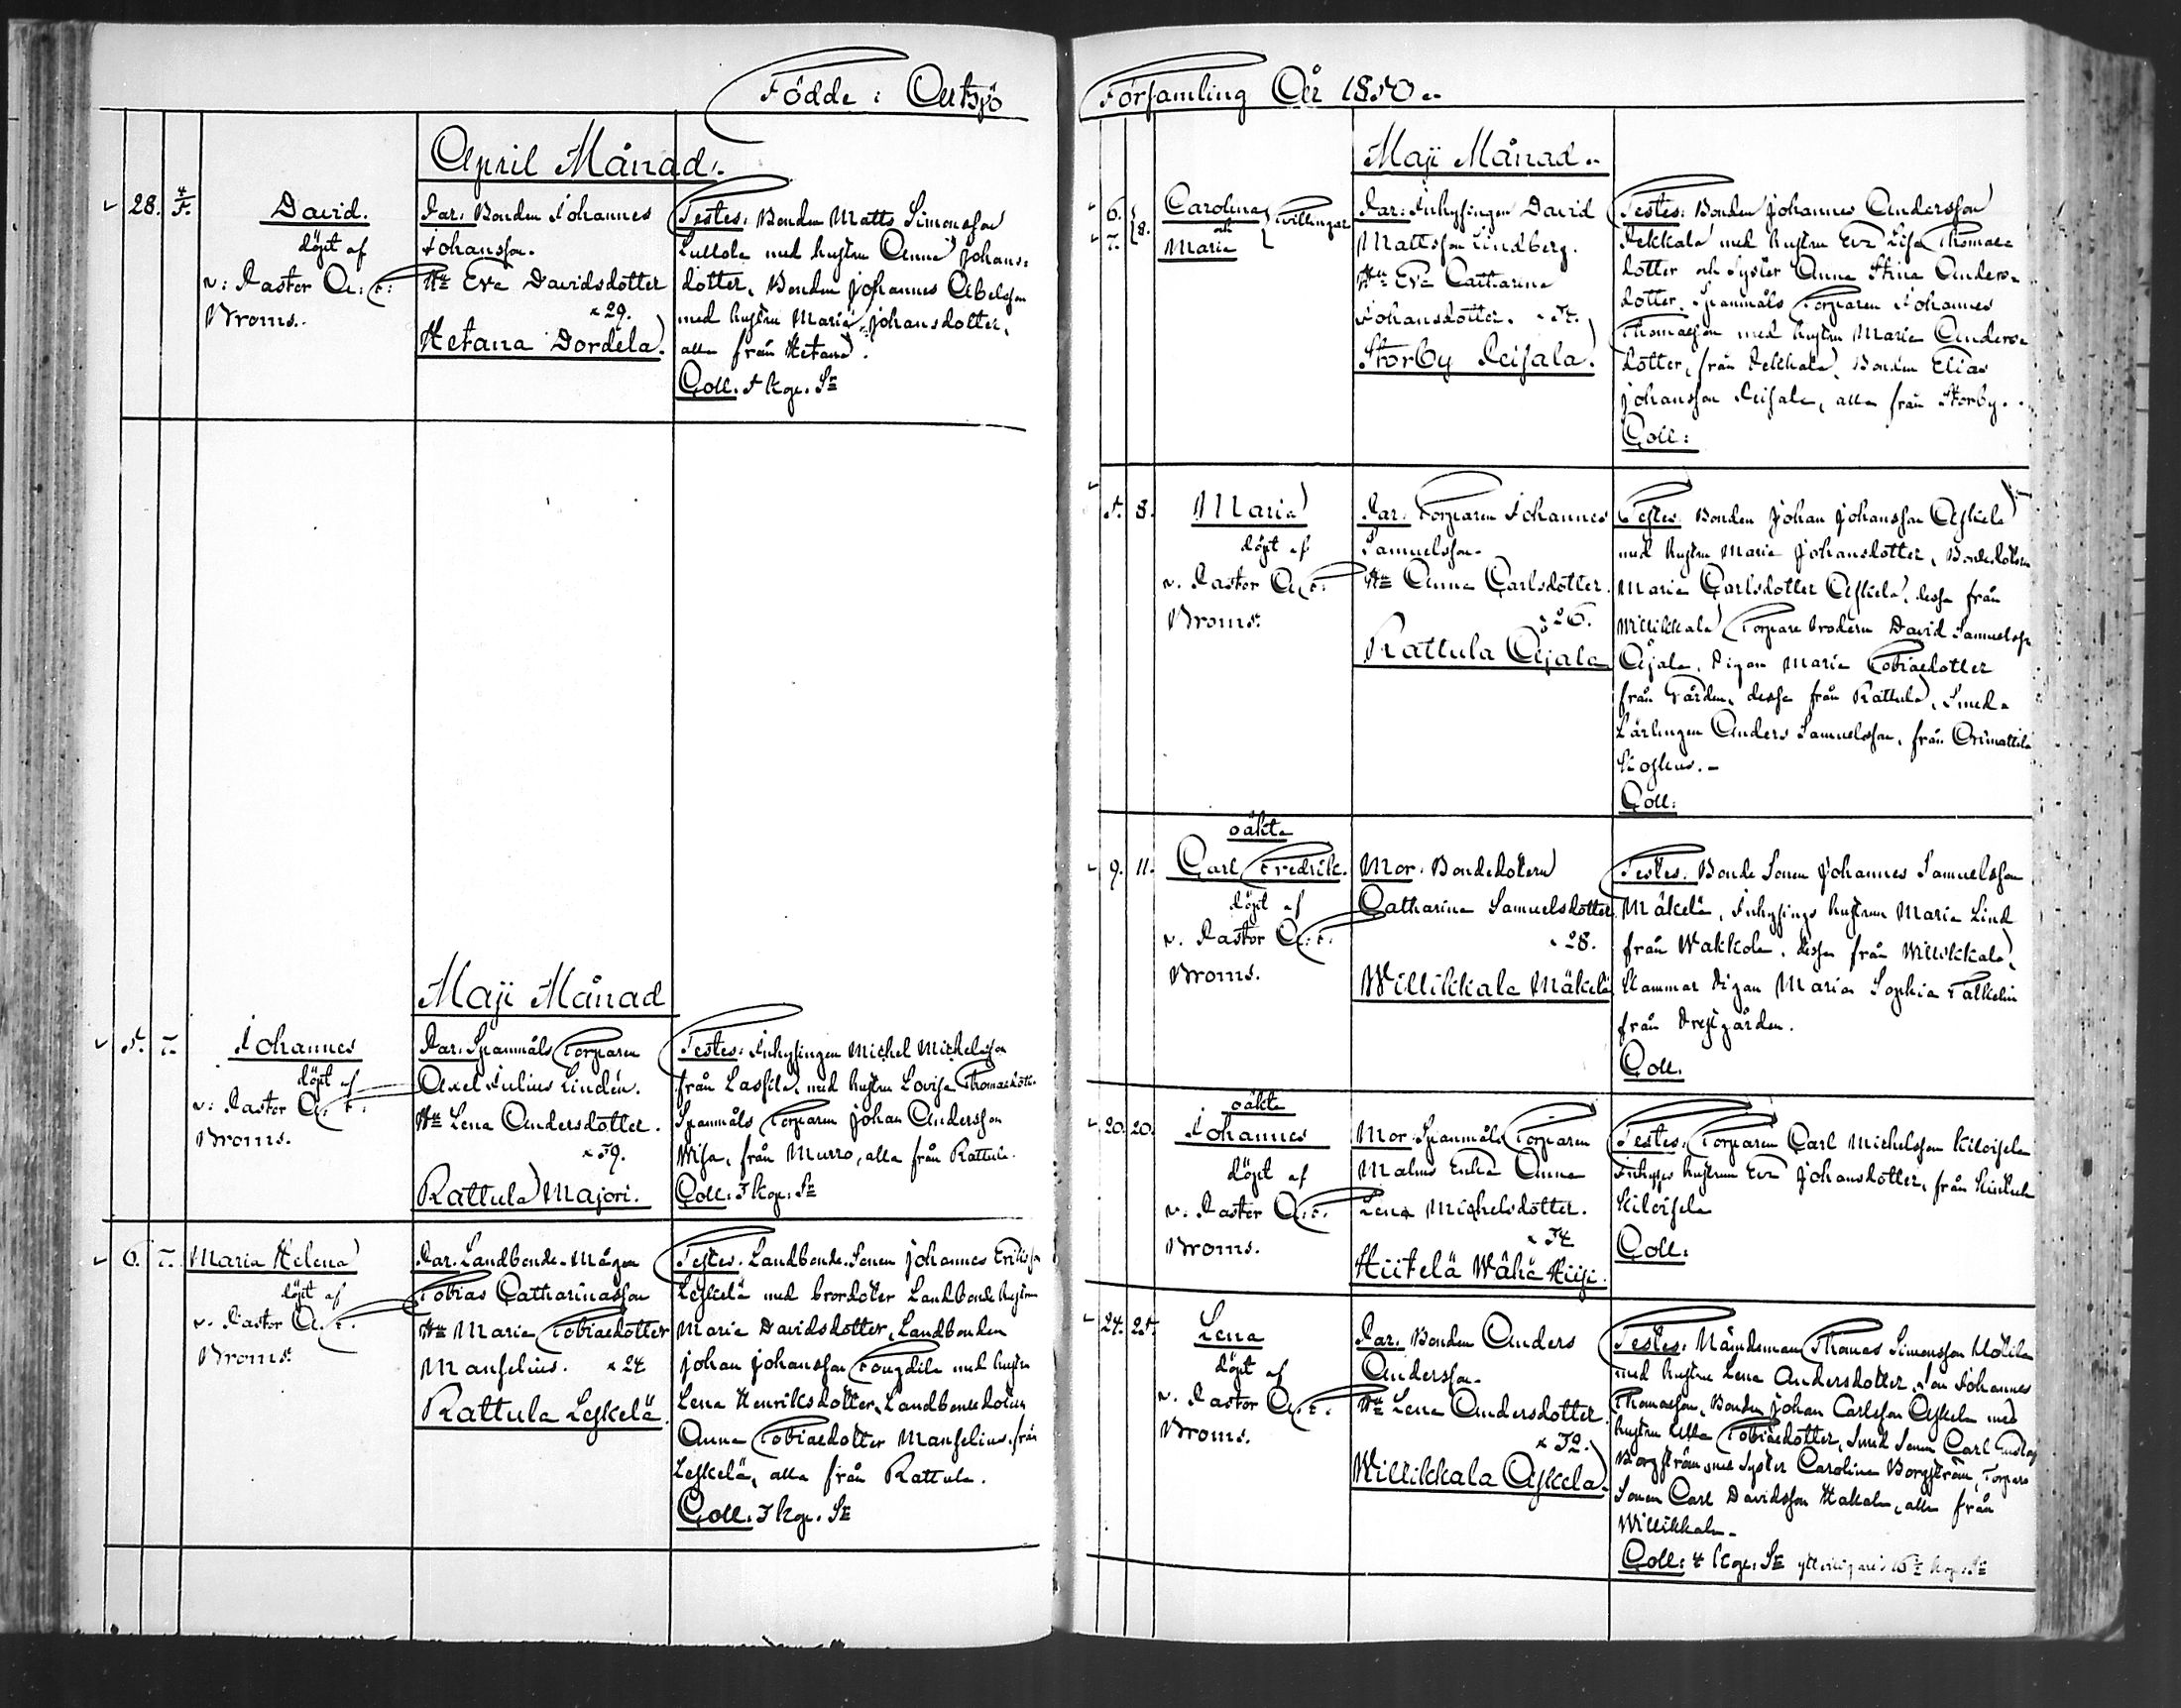 Födde i Artsjö
April Månad.
28. 4/5. David.
döpt af
v: Pastor A: F:
Broms.
Par: Bonden Johannes
Johansson.
Hu Eva Davidsdotter
29.
Hetana Dordela.
Testes: Bonden Matts Simonsson
Lullola med hustru Anna Johans-
dotter, Bonden Johannes Abelsson
med hustru Maria Johansdotter,
alla från Hetana.
Coll. 5 kop. Sr
Maji Månad
5. 7. Johannes
döpt af
v: Pastor A. F.
Broms.
Par: Spanmåls Torparen
Axel Julius Lindén.
Hu Lena Andersdotter.
39.
Rattula Majori.
Testes: Inhysingen Michel Michelsson
från Lassila, med hustru Lovisa Thomaedott.
Spanmåls Torparen Johan Andersson
Wisa, från Murro, alla från Rattula.
Coll: 3 kop. Sr
6. 7. Maria Helena
döpt af
v. Pastor A. F.
Broms.
Par. Landbonde-Mågen
Tobias Catharinasson
Hu Maria Tobiaedotter
Manselius. 24
Rattula Leskelä.
Testes. Landbonde-Sonen Johannes Eriksson
Leskelä med brordoter Landbonde hustru
Maria Davidsdotter, Landbonden
Johan Johansson med hustru
Lena Henriksdotter, Landbondedotern
Anna Tobiaedotter Manselius, från
Leskelä, alla från Rattula.
Coll. 3 kop. Sr
Församling År 1850.
Maji Månad.
6. 7. 8. Carolina
och
Maria
Tvillingar
Par: Inhysingen David
Mattsson Lindberg.
Hu Eva Catharina
Johansdotter. 34.
Storby Peisala.
Testes: Bonden Johannes Andersson
Pekkala med hustru Eva Lisa Thomae
dotter och Syster Anna Stina Anders-
dotter. Spanmåls Torparen Johannes
Thomasson med hustru Maria Anders-
dotter, från Pekkala, Bonden Elias
Johansson Peisala, alla från Storby.
Coll:
5. 8. Maria
döpt af
v. Pastor A. F.
Broms.
Par. Torparen Johannes
Samuelsson.
Hu Anna Carlsdotter.
26.
Rattula Ajala
Testes. Bonden Johan Johansson Askela
med hustru Maria Johansdotter, Bondedotern
Maria Carlsdotter Askela, dessa från
Willikkala Torpare brodern David Samuelsson
Ajala, Pigan Maria Tobiaedotter
från Gården, dessa från Rattula, Smeds
Lärlingen Anders Samuelsson, från Orimattila
Coll:
oäkta
9. 11. Carl Fredrik.
döpt af
v. Pastor A. F.
Broms.
Mor. Bondedotern
Catharina Samuelsdotter
28.
Willikkala Mäkelä
Testes. Bonde Sonen Johannes Samuelsson
Mäkelä, Inhysings hustrun Maria Lind
från Wakkola, dessa från Willikkala,
Kammar Pigan Maria Sophia
från Prestgården.
Coll.
oäkta
20. 20. Johannes
döpt af
v. Pastor A. F.
Broms.
Mor. Spanmåls Torparen
Malms Enka Anna
Lena Michelsdotter.
34
Hiitelä Wähä Hiisi.
Testes. Torparen Carl Michelsson
Inhyses hustrun Eva Johansdotter, från
Coll:
24. 25. Lena
döpt af
v. Pastor A. F.
Broms.
Par. Bonden Anders
Andersson.
Hu Lena Andersdotter.
32.
Willikkala Askela.
Testes: Nämndeman Thomas Simonsson
med hustru Lena Andersdotter, Son Johannes
Thomasson, Bonden Johan Carlsson Askela med
hustru Ulla Tobiaedotter, Smed Sonen Carl Gustaf
Borgström med Syster Carolina Borgström, Torpare
Sonen Carl Davidsson Hakala, alla från
Willikkala.
Coll: 4 kop. Sr